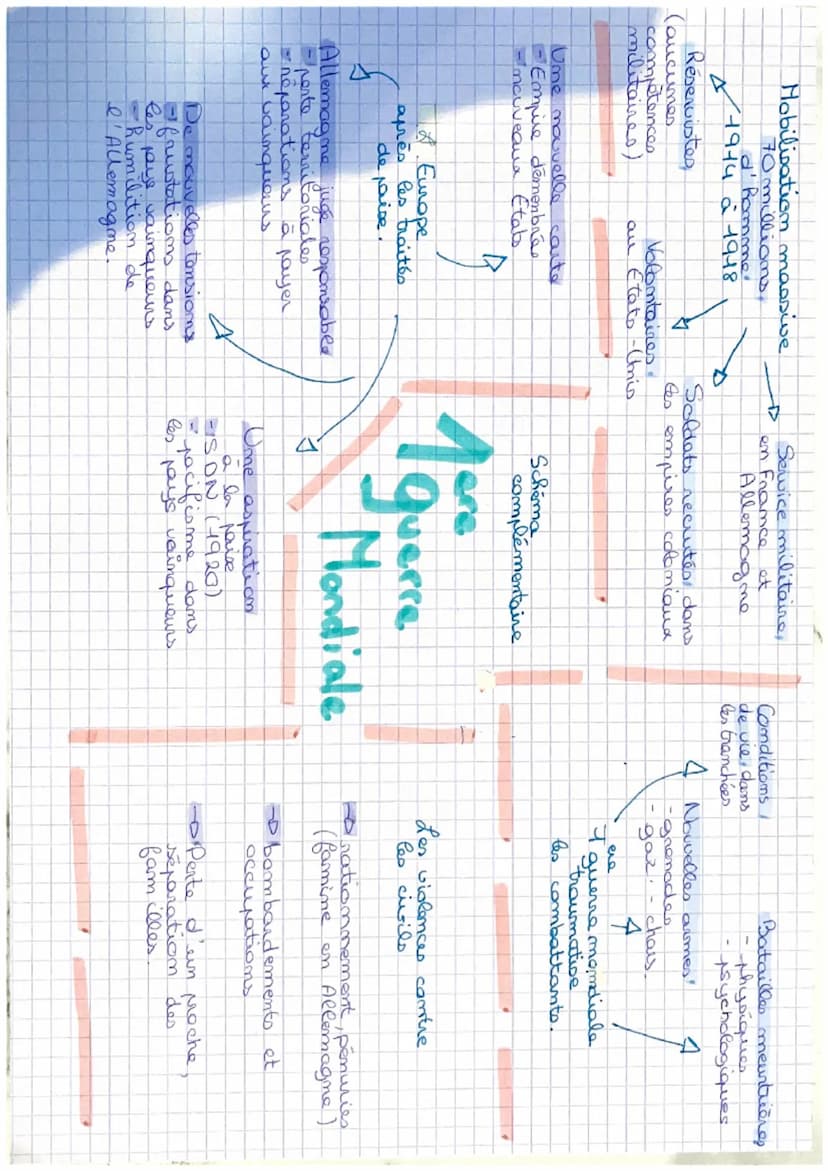 Mobilisation massive
70 millions
d'hommes
1914 à 1918
Réservistes
(aucunes
compétences
militaires)
Volontaires
au États-Unis
Soldats recrutés dans
les empires coloniaux
Service militaire
en France et
Allemagne
Conditions
de vie dans
les tranchées
Nouvelles armes
- grenades
- gaz - chars.
Batailles meurtrières
- physiques
- psychologiques
1ère guerre mondiale
traumatise
les combattants.
Schéma
complémentaire
1ere
guerre
Mondiale
Une nouvelle carte
- Empire démembrée
- nouveaux États
Europe
après les traités
de paix.
Allemagne jugé responsable
- perte territoriales
- réparations à payer
aux vainqueurs
De nouvelles tensions
- frustations dans
les pays vainqueurs
- humilition de
l'Allemagne.
Une aspiration
à la paix
- SDN (1920)
- pacifisme dans
les pays vainqueurs
Les violences contre
les civils
rationnement, pénuries
(famine en Allemagne)
bombardements et
occupations
Perte d'un proche,
séparation des
familles.